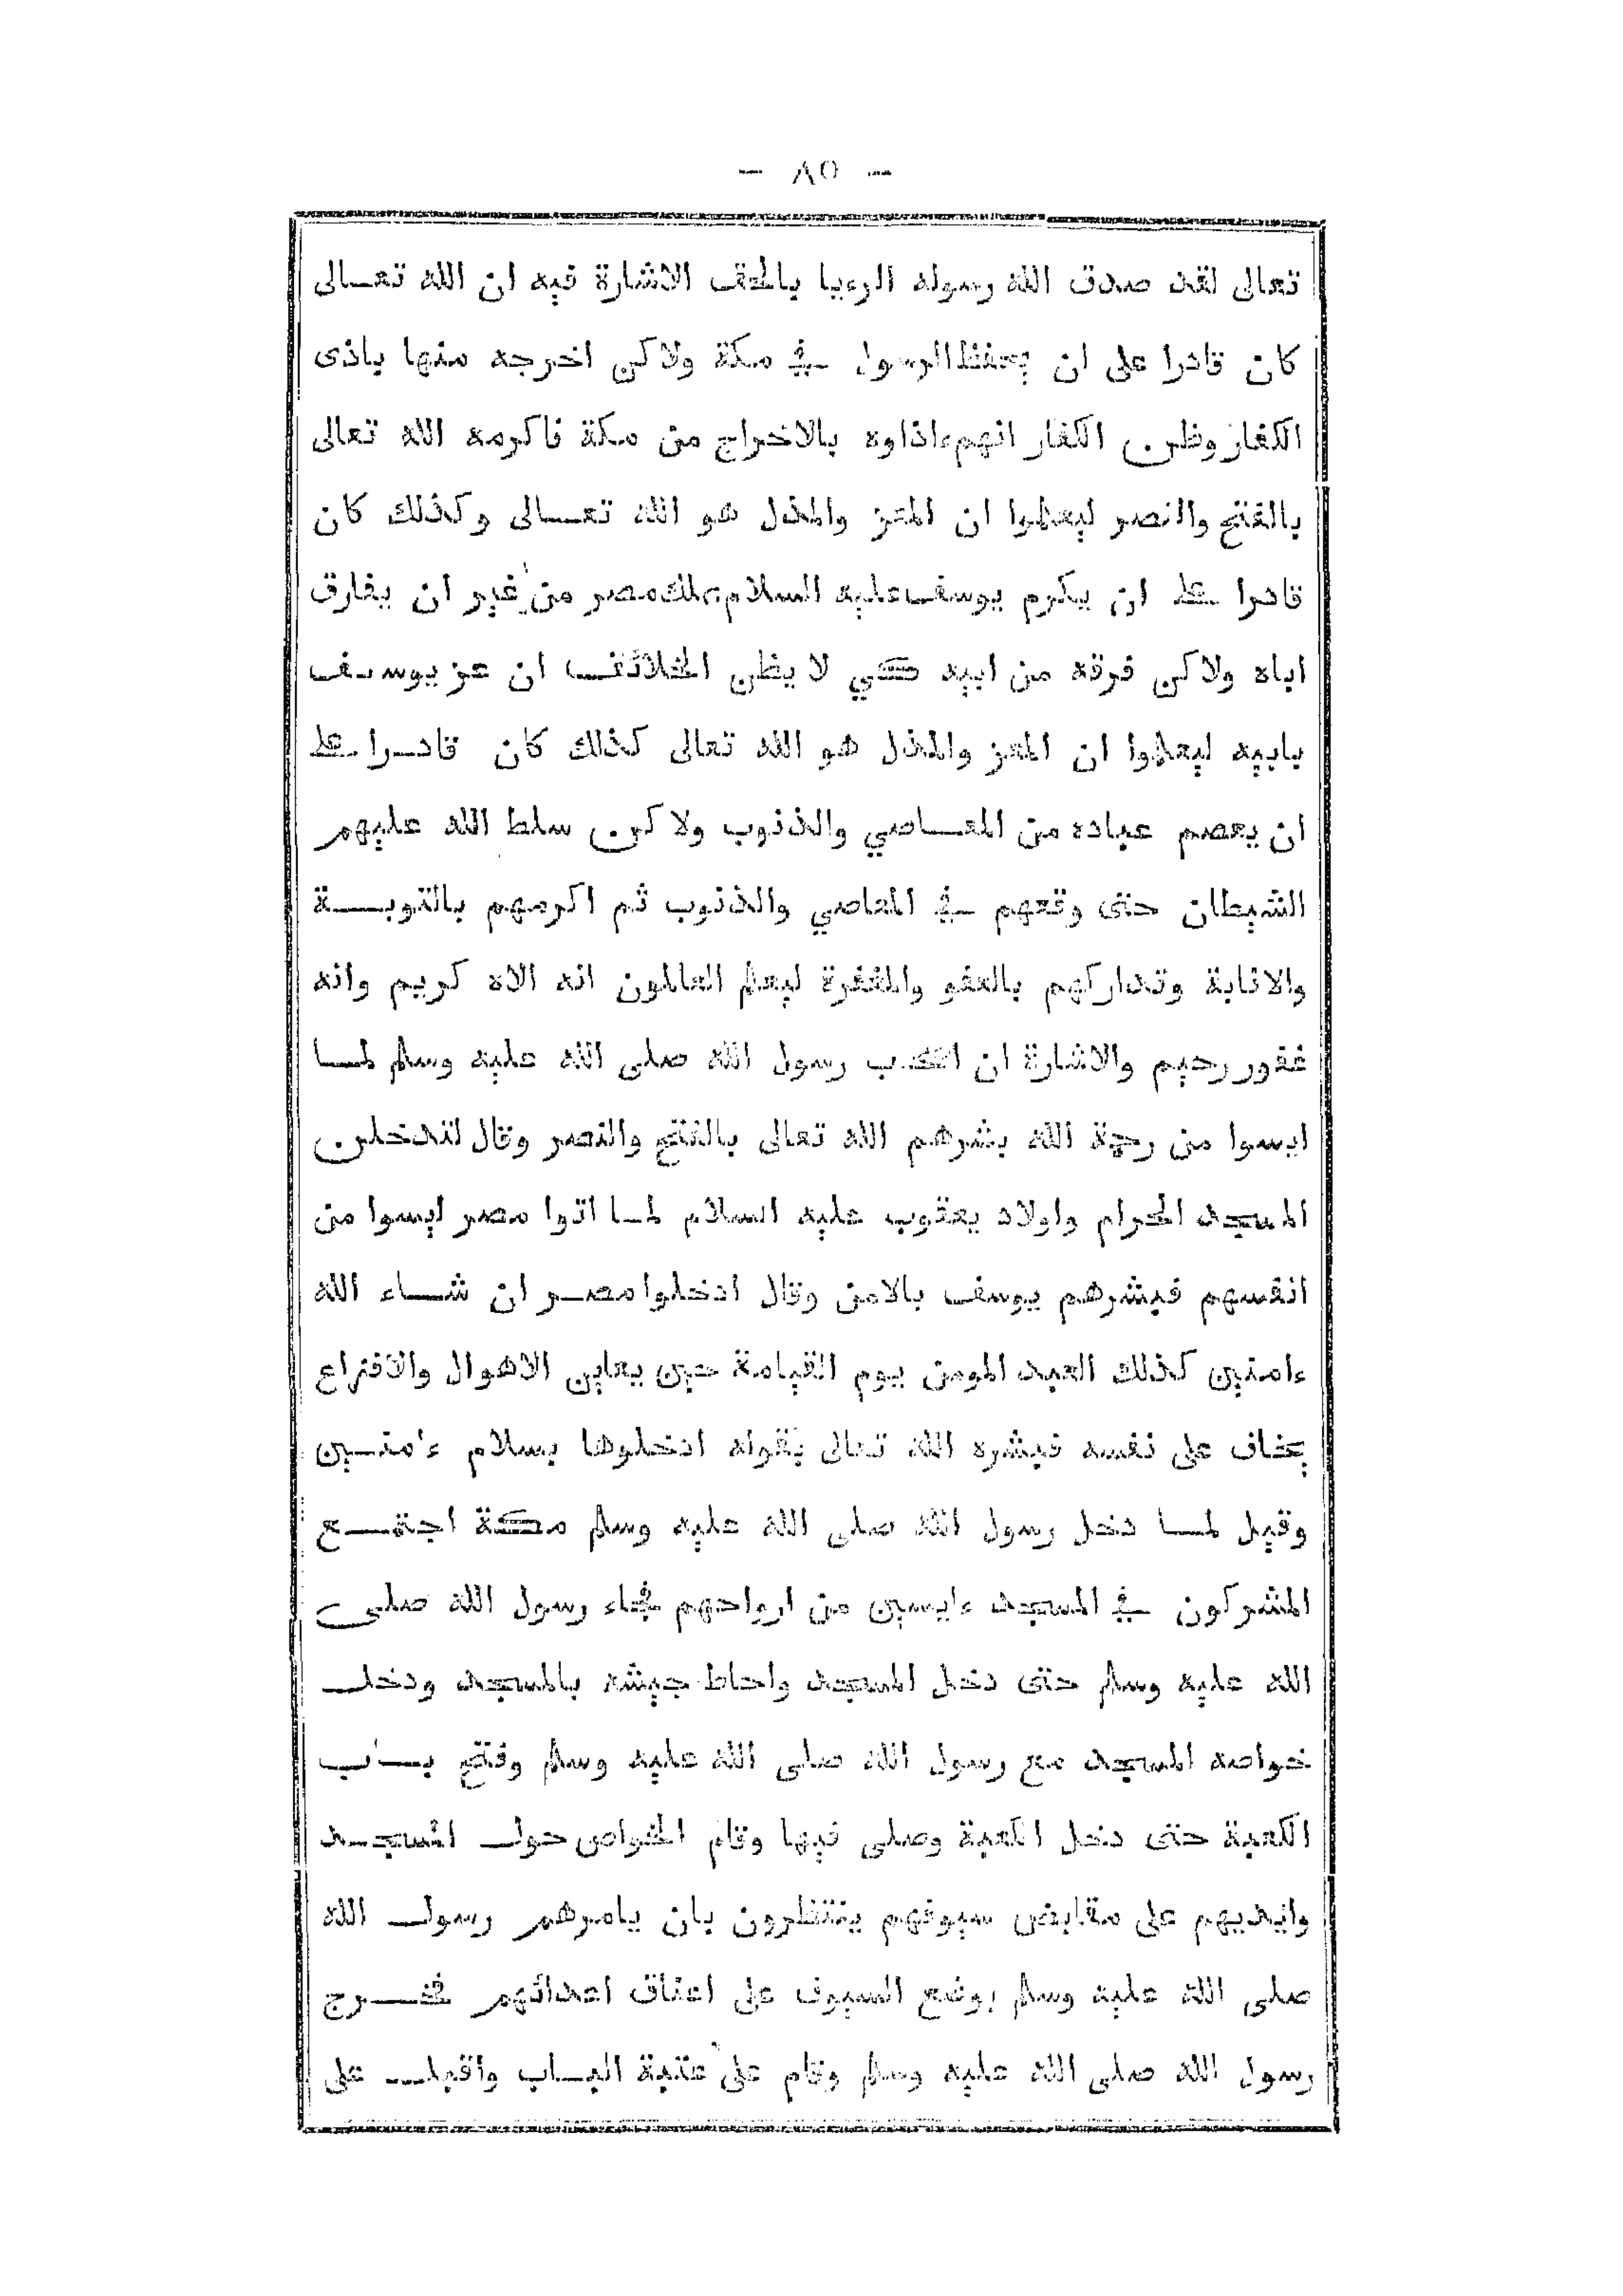 — ٨٥ —
تعالى لقد صدق الله رسوله الرءيا بالحق الاشارة فيه ان الله تعالى
كان قادرا على ان يحفظ الرسول في مكة ولاكن اخرجه منها باذى
الكفار وظن الكفار انهم ءاذاوه بالاخراج من مكة فاكرمه الله تعالى
بالفتح والنصر ليعلموا ان المعز والمذل هو الله تعالى وكذلك كان
قادرا على ان يكرم يوسف عليه السلام بملك مصر من غير ان يفارق
اباه ولاكن فرقه من ابيه كي لا يظن الخلائق ان عز يوسف
بابيه ليعلموا ان المعز والمذل هو الله تعالى كذلك كان قادرا على
ان يعصم عباده من المعاصي والذنوب ولاكن سلط الله عليهم
الشيطان حتى وقعهم في المعاصي والذنوب ثم اكرمهم بالتوبة
والانابة وتداركهم بالعفو والمغفرة ليعلم العالمون انه الاه كريم وانه
غفور رحيم والاشارة ان رسول الله صلى الله عليه وسلم لما
ايسوا من رحمة الله بشرهم الله تعالى بالفتح والنصر وقال لتدخلن
المسجد الحرام واولاد يعقوب عليه السلام لما اتوا مصر ايسوا من
انفسهم فبشرهم يوسف بالامن وقال ادخلوا مصر ان شاء الله
ءامنين كذلك العبد المومن يوم القيامة حين يعاين الاهوال والافزاع
يخاف على نفسه فيبشره الله تعالى بقوله ادخلوها بسلام ءامنين
وقيل لما دخل رسول الله صلى الله عليه وسلم مكة اجتمع
المشركون في المسجد ءايسين من ارواحهم فجاء رسول الله صلى
الله عليه وسلم حتى دخل المسجد واحاط جيشه بالمسجد ودخل
خواصه المسجد مع رسول الله صلى الله عليه وسلم وفتح باب
الكعبة حتى دخل الكعبة وصلى فيها وقام الخواص حول المسجد
وايديهم على مقابض سيوفهم ينتظرون بان يامرهم رسول الله
صلى الله عليه وسلم بوضع السيوف على اعناق اعدائهم فخرج
رسول الله صلى الله عليه وسلم وقام على عتبة الباب واقبل على